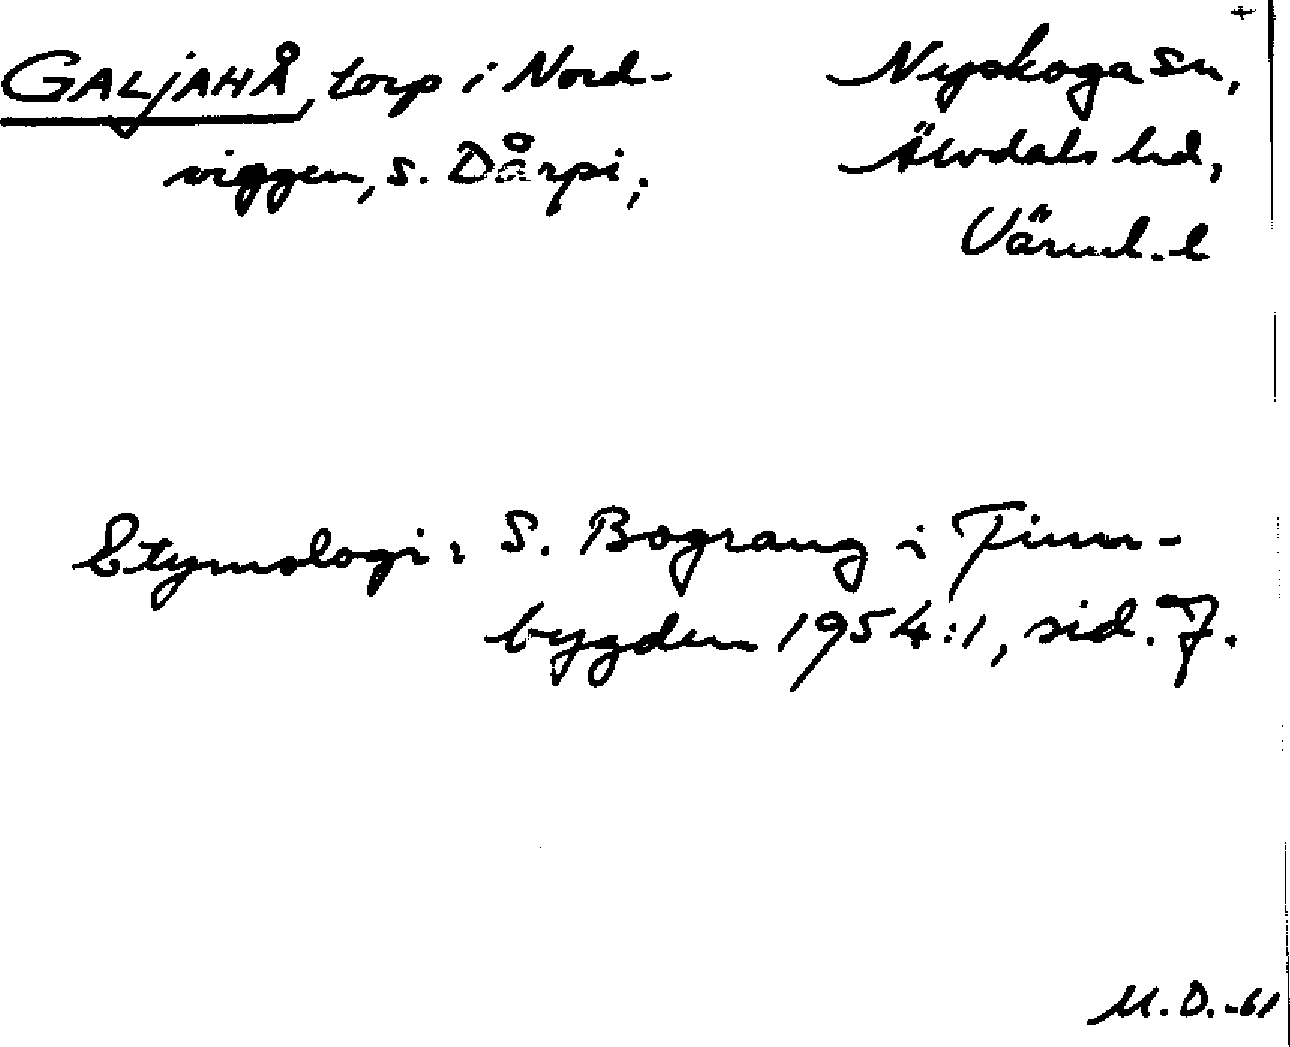 GALJAHÅ, torp i Nord-
viggen, s. Dårpi,
Nyskoga sn,
Älvdals hd,
Värml. l
Etymologi: S. Bograng i Finn-
bygden 1954:1, sid. 7.
M.D.-61